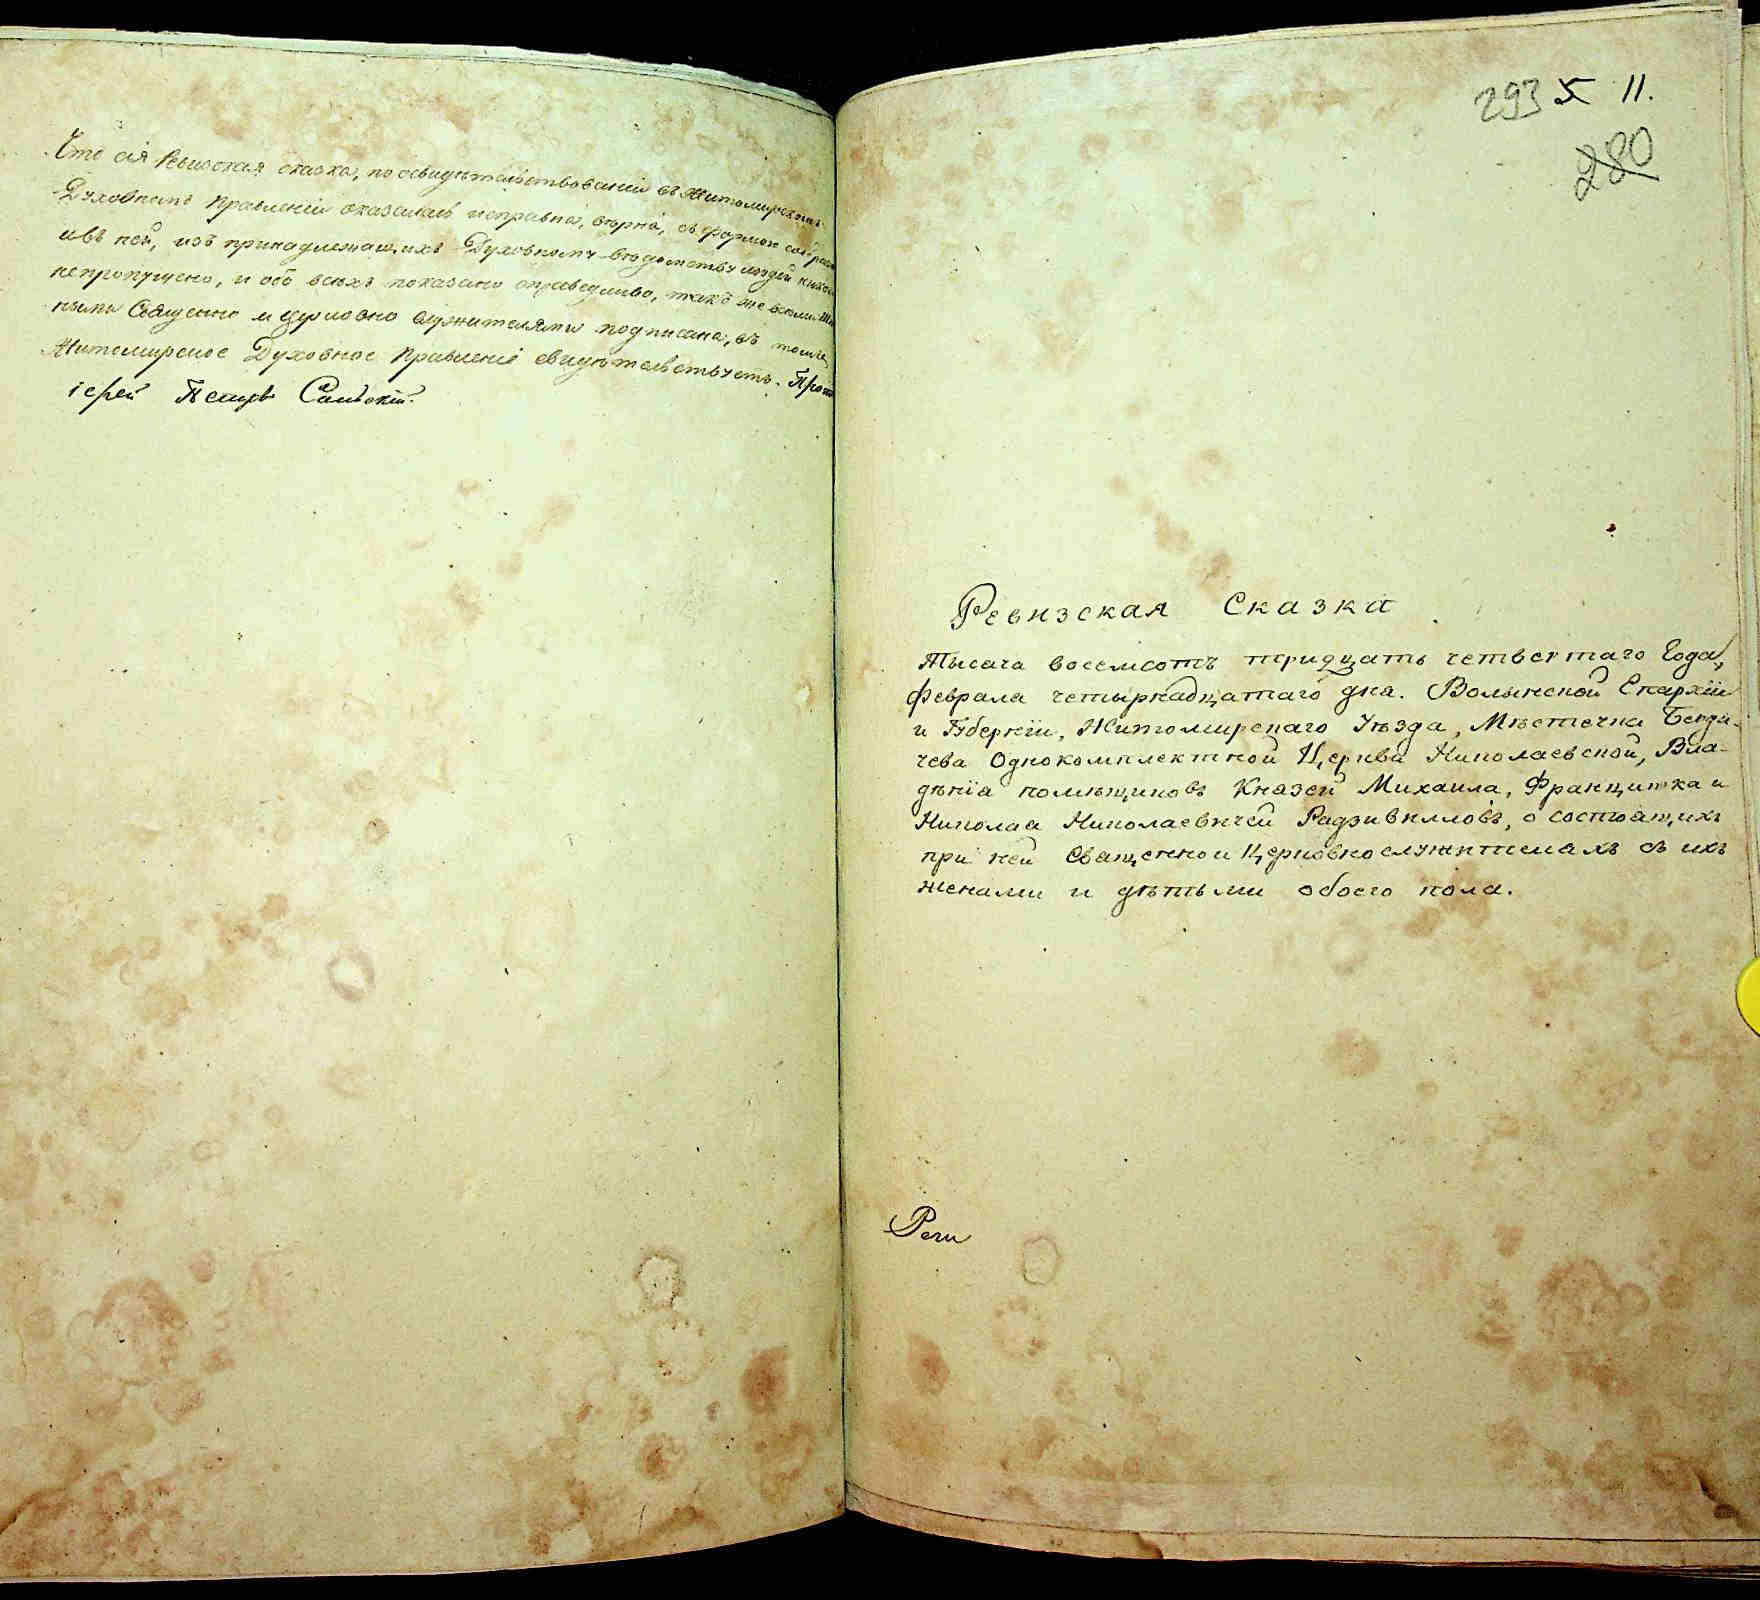 Что сія Ревизская сказка, по освидѣтельствованіи въ Житомирскомъ
Духовномъ Правленіи оказалась исправна, вѣрна, съ формою
и въ ней, изъ принадлежащихъ Духовному вѣдомству людей никто
непропущено, и объ всѣхъ показано справедливо, такъ же всѣми
ными Священно и церковно служителями подписана, въ томъ
Житомирское Духовное Правленіе свидѣтельствуетъ. Прото
іерей Петръ
293 5 11.
280
Ревизская Сказка
Тысяча восемсотъ тридцать четвертаго Года,
февраля четырнадцатаго дня. Волынской Епархіи
и Губерніи, Житомирскаго Уѣзда, Мѣстечка Бердı-
чева Однокомплектной Церкви Николаевской, Вла-
дѣнія помѣщиковъ Князей Михаила, Францишка и
Николая Николаевичей Радзивилловъ, о состоящихъ
при ней Священно и Церковнослужителяхъ съ ихъ
женами и дѣтьми обоего пола.